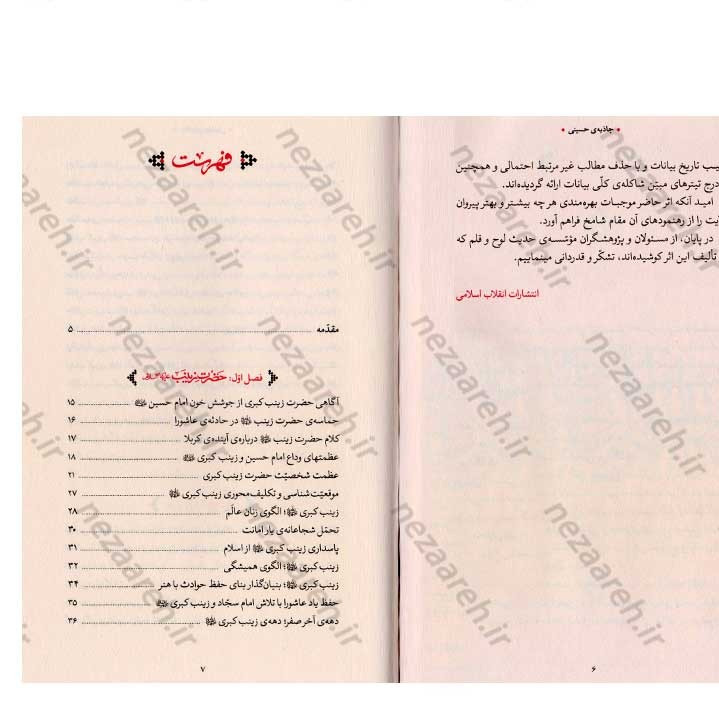 جاذبه‌ی حسینی
تاریخ بیانات و با حذف مطالب غیر مرتبط احتمالی و همچنین
درج تیترهای مبیّن شاکله‌ی کلّی بیانات ارائه گردیده‌اند.
امید آنکه اثر حاضر موجبات بهره‌مندی هر چه بیشتر و بهتر پیروان
را از رهنمودهای آن مقام شامخ فراهم آورد.
در پایان، از مسئولان و پژوهشگران مؤسّسه‌ی حدیث لوح و قلم که
تألیف این اثر کوشیده‌اند، تشکّر و قدردانی مینماییم.
انتشارات انقلاب اسلامی
۶
فهرست
مقدّمه ۵
فصل اوّل: حضرت زینب
آگاهی حضرت زینب کبری از جوشش خون امام حسین ۱۵
حماسه‌ی حضرت زینب در حادثه‌ی عاشورا ۱۶
کلام حضرت زینب درباره‌ی آینده‌ی کربلا ۱۷
عظمتهای وداع امام حسین و زینب کبری ۱۸
عظمت شخصیّت حضرت زینب کبری ۲۱
موقعیّت‌شناسی و تکلیف‌محوری زینب کبری ۲۷
زینب کبری؛ الگوی زنان عالَم ۲۸
تحمّل شجاعانه‌ی بار امانت ۳۰
پاسداری زینب کبری از اسلام ۳۱
زینب کبری؛ الگوی همیشگی ۳۲
زینب کبری؛ بنیان‌گذار بنای حفظ حوادث با هنر ۳۴
حفظ یاد عاشورا با تلاش امام سجّاد و زینب کبری ۳۵
دهه‌ی آخر صفر؛ دهه‌ی زینب کبری ۳۶
۷
nezaareh.ir
nezaareh.ir
nezaareh.ir
nezaareh.ir
nezaareh.ir
nezaareh.ir
nezaareh.ir
nezaareh.ir
nezaareh.ir